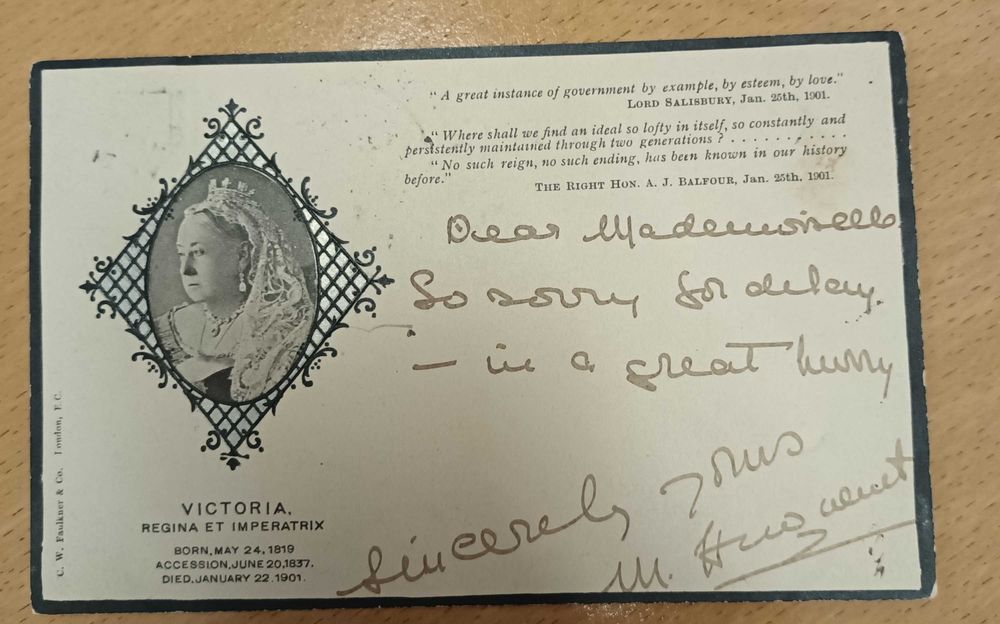 "A great instance of government by example, by esteem, by love."
LORD SALISBURY, Jan. 25th, 1901.
"Where shall we find an ideal so lofty in itself, so constantly and
persistently maintained through two generations ? . . . . . . . . . . .
"No such reign, no such ending, has been known in our history
before."
THE RIGHT HON. A. J. BALFOUR, Jan. 25th, 1901.
Dear Mademoiselle
So sorry for delay.
– in a great hurry
Sincerely yours
M.
VICTORIA,
REGINA ET IMPERATRIX
BORN, MAY 24, 1819
ACCESSION, JUNE 20, 1837.
DIED, JANUARY 22. 1901.
C. W. Faulkner & Co. London, E.C.